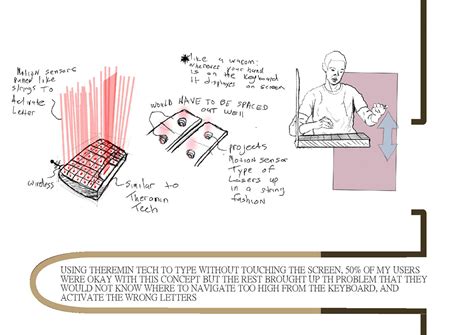 Motion sensors
Paned like
strings to
Activate
Letter
wireless
similar to
Theromin
Tech
*Like a wacom:
wherever your hand
is on the keyboard
it displays on screen
would HAVE TO BE SPACED
out well
projects
Motion sensor
Type of
Lasers up
in a string
fashion
USING THEREMIN TECH TO TYPE WITHOUT TOUCHING THE SCREEN, 50% OF MY USERS
WERE OKAY WITH THIS CONCEPT BUT THE REST BROUGHT UP TH PROBLEM THAT THEY
WOULD NOT KNOW WHERE TO NAVIGATE TOO HIGH FROM THE KEYBOARD, AND
ACTIVATE THE WRONG LETTERS